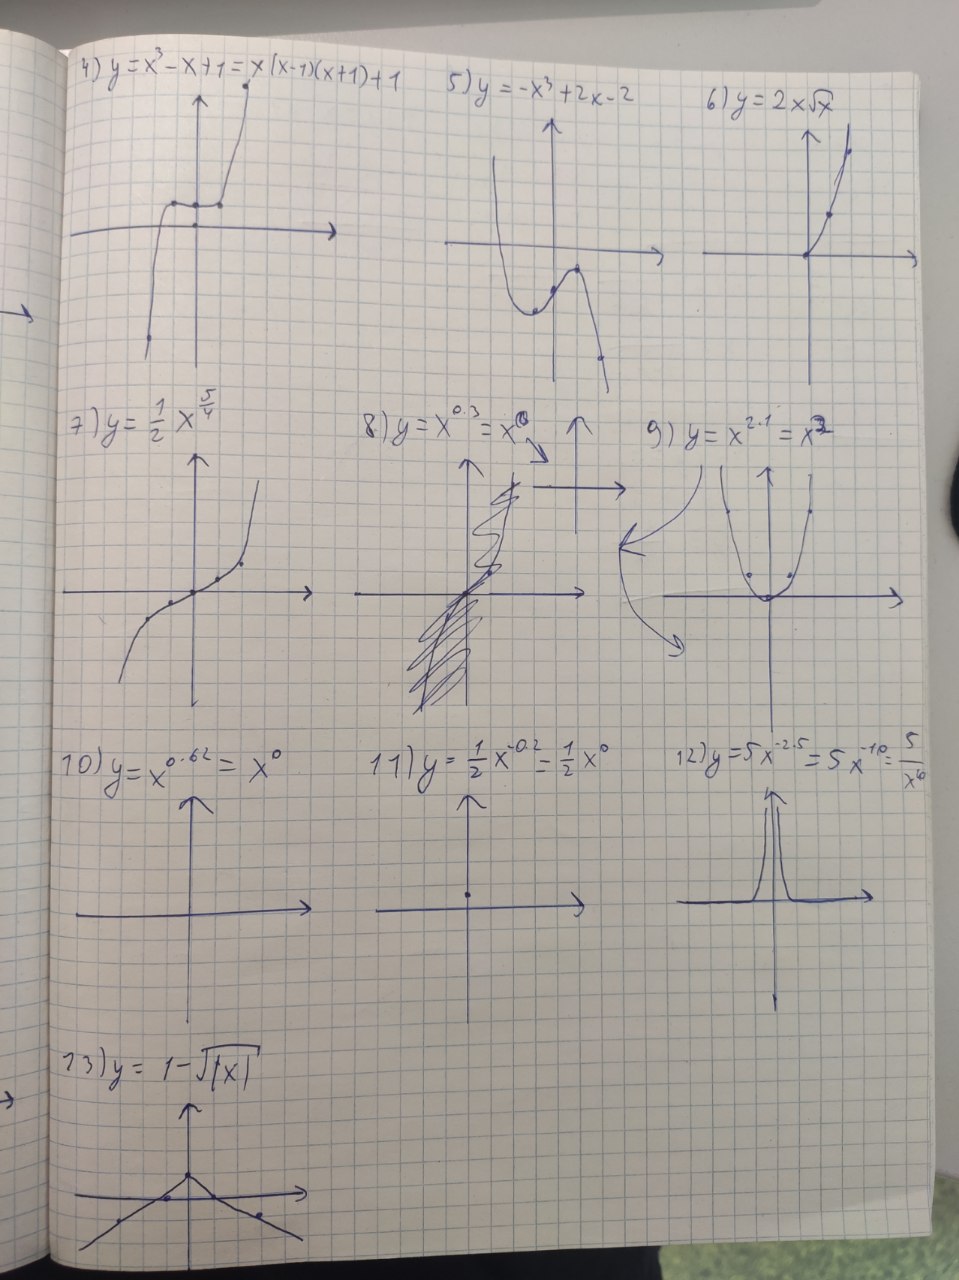 4) y = x³ - x + 1 = x(x-1)(x+1) + 1
5) y = -x³ + 2x - 2
6) y = 2x√x
7) y = 1/2 x^(5/4)
8) y = x^0.3 = x^0
9) y = x^2.1 = x^2
10) y = x^0.62 = x^0
11) y = 1/2 x^-0.2 = 1/2 x^0
12) y = 5x^-2.5 = 5x^-10 = 5/x^10
13) y = 1 - √|x|